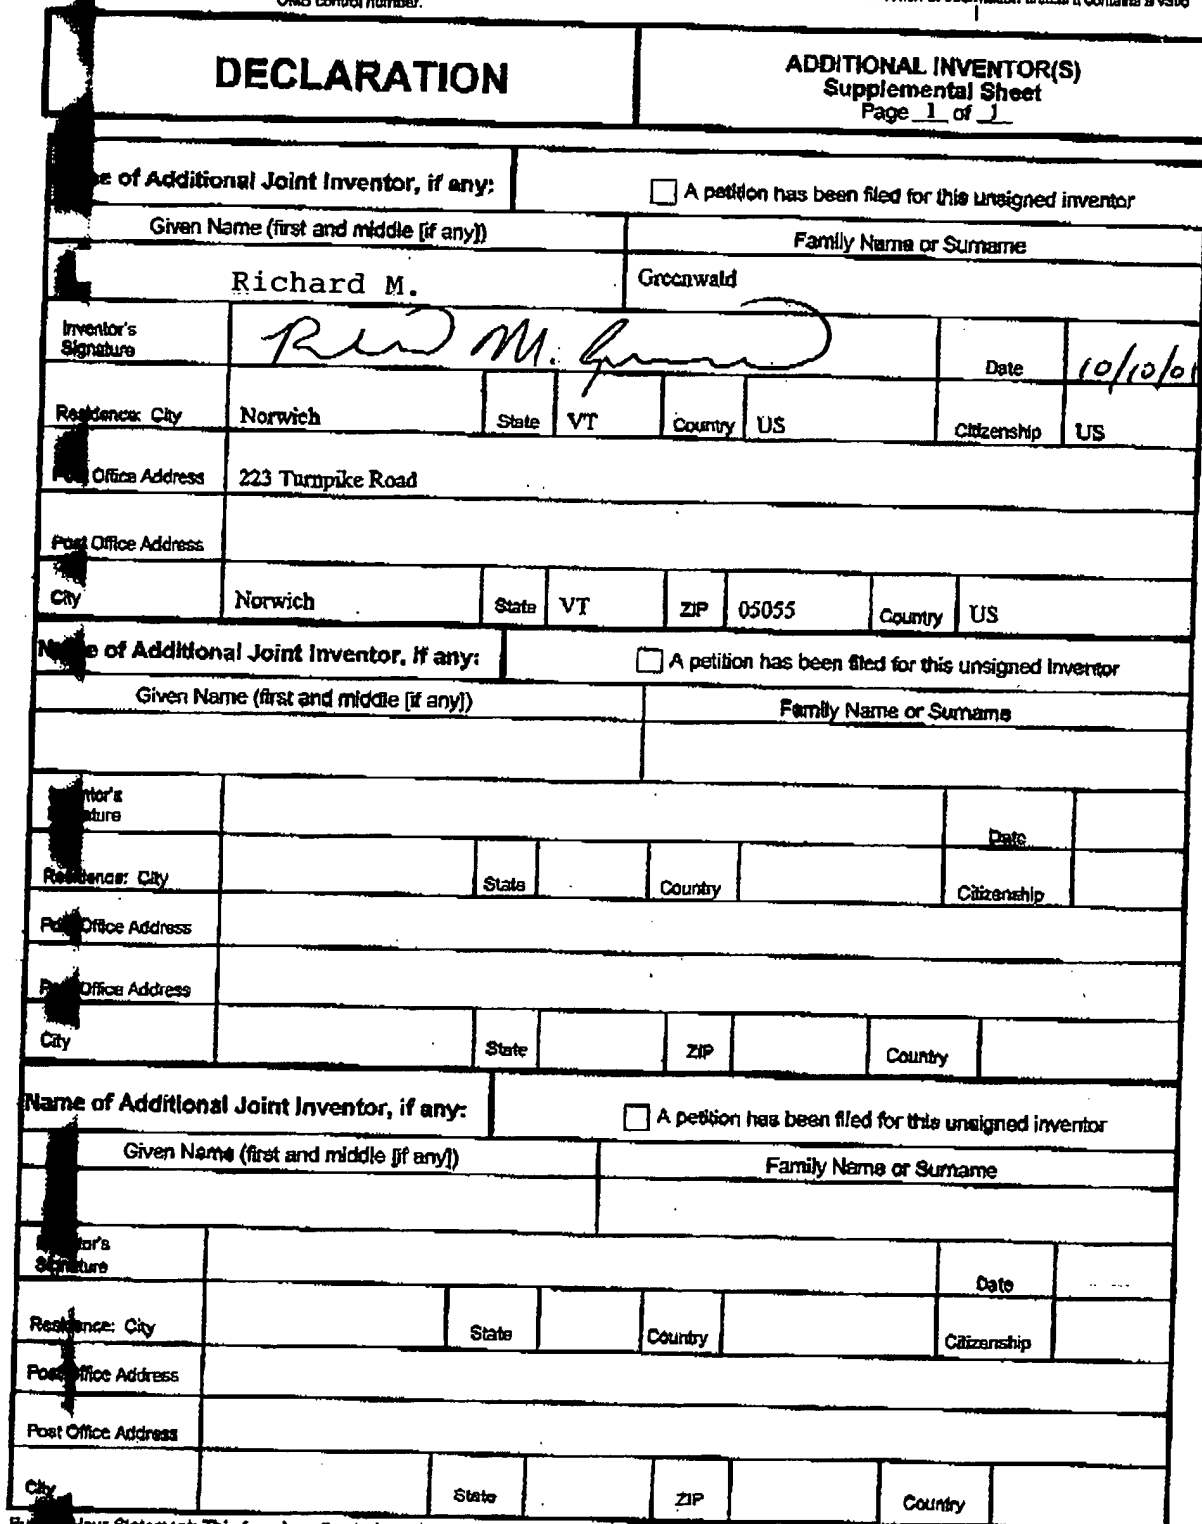 OMB control number.
DECLARATION
ADDITIONAL INVENTOR(S)
Supplemental Sheet
Page 1 of 1
of Additional Joint Inventor, if any:
A petition has been filed for this unsigned inventor
Given Name (first and middle [if any])
Family Name or Surname
Richard M.
Greenwald
Inventor's
Signature
Date
10/10/01
Residence: City
Norwich
State
VT
Country
US
Citizenship
US
Post Office Address
223 Turnpike Road
Post Office Address
City
Norwich
State
VT
ZIP
05055
Country
US
Name of Additional Joint Inventor, if any:
A petition has been filed for this unsigned inventor
Given Name (first and middle [if any])
Family Name or Surname
Inventor's
Signature
Date
Residence: City
State
Country
Citizenship
Post Office Address
Post Office Address
City
State
ZIP
Country
Name of Additional Joint Inventor, if any:
A petition has been filed for this unsigned inventor
Given Name (first and middle [if any])
Family Name or Surname
Inventor's
Signature
Date
Residence: City
State
Country
Citizenship
Post Office Address
Post Office Address
City
State
ZIP
Country